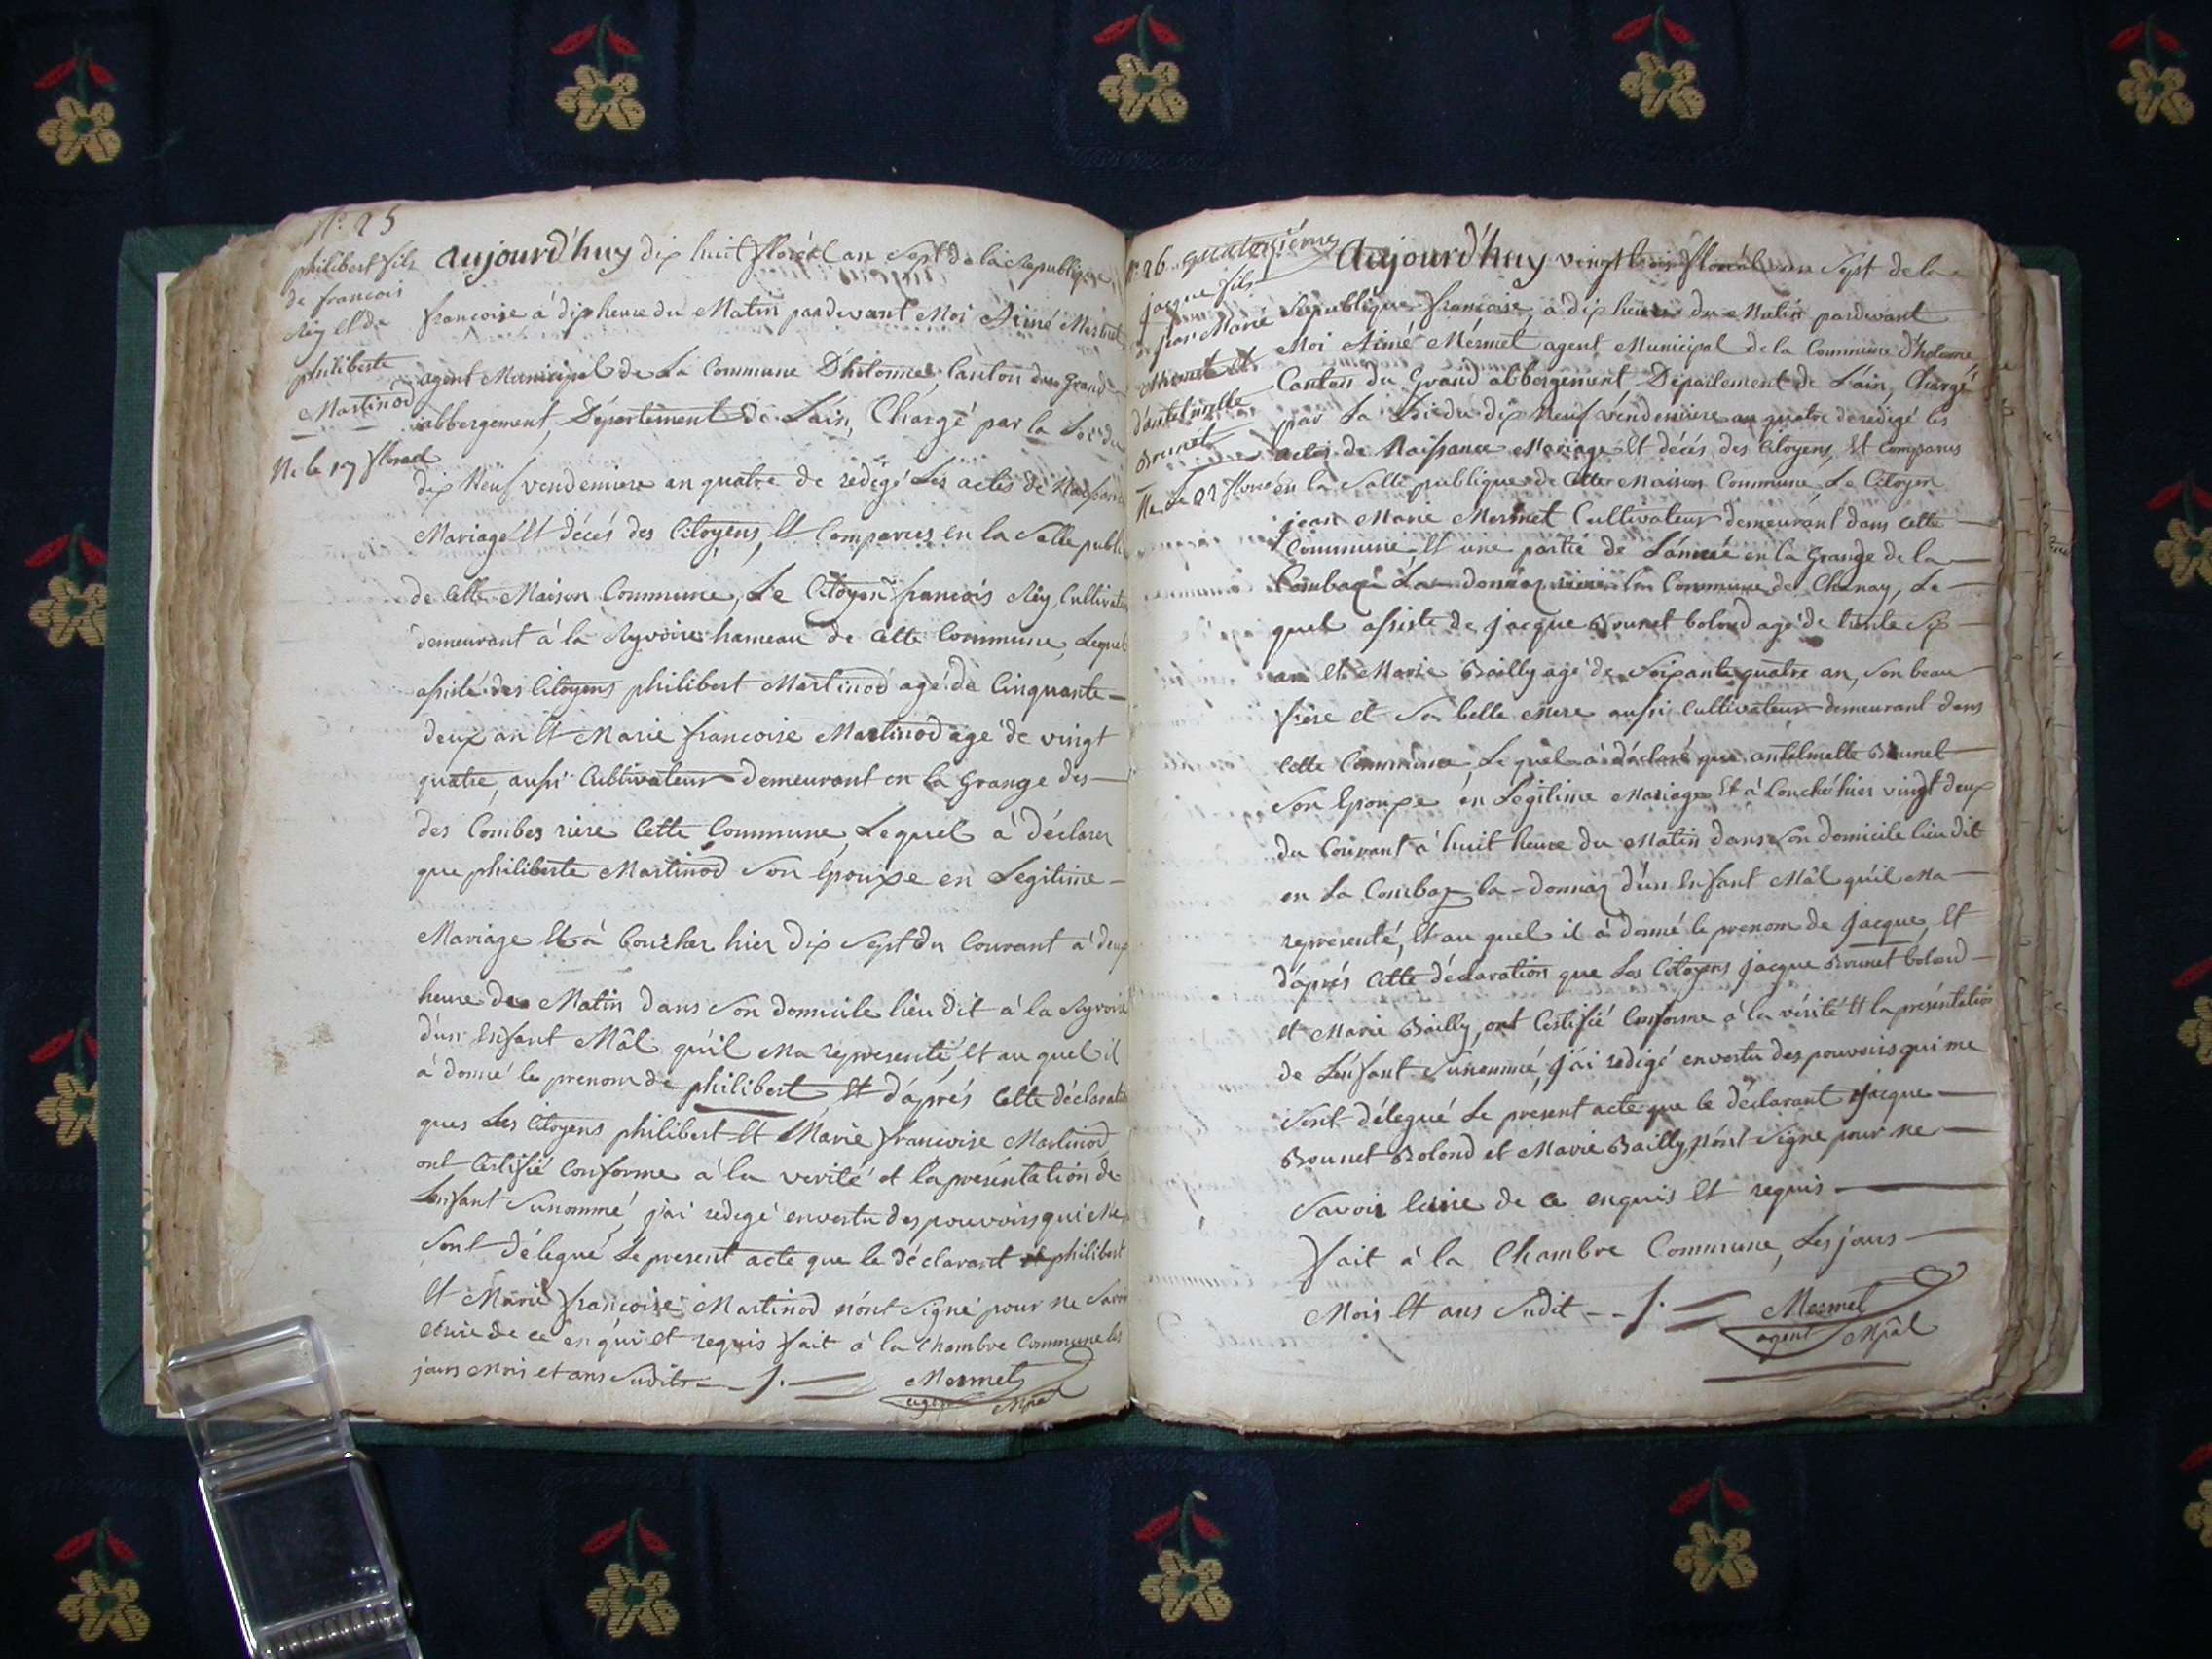 N.° 25
philibert fils
de francois
Rey et de
philiberte
Martinod
Ne le 17 floreal
aujourd'huy dix huit floréal an Sept de la Republique
francoise à dix heure du Matin pardevant Moi Aimé Mermet
agent Municipal de La Commune D'hotonnes, Canton du Grand
abbergement, Département De L'ain, Chargé par la Loi du
dix Neuf vendemiere an quatre de redigé Les actes de Naissance
Mariage Et décés des Citoyens, Et Comparus en la Salle publi
de Cette Maison Commune, Le Citoyen francois Rey Cultivateur
demeurant à la Ryvoire hameau de Cette Commune, Lequel
assisté des Citoyens philibert Martinod agé de Cinquante
deux an Et Marie francoise Martinod agé de vingt
quatre, aussi Cultivateur demeurant en la Grange des
des Combes riere Cette Commune, Lequel à déclarer
que philiberte Martinod Son Epouxe en Legitime
Mariage Et à Coucher hier dix Sept du Courant à deux
heure du Matin dans Son domicile lieu dit à la Ryvoire
d'un Enfant Mâl qu'il Ma representé, Et au quel il
à donné le prenom de philibert, Et d'aprés Cette déclaration
ques Les Citoyens philibert Et Marie francoise Martinod
ont Certifié Conforme à la verité et la présentation de
Lenfant Sunommé, j'ai redegé envertu des pouvoirs qui Me
Sont délegué Le present acte que le déclarant philibert
Et Marie francoise Martinod n'ont Signé pour ne Savoir
ecrire de ce enqui et requis fait à la Chambre Commune les
jours Mois et ans Sudits Mermet
agent Mpal
N.° 26 quatorsiéme
jacque fils
de jean Marie
Mermet et
d'antelmette
Brunet
Ne Le 22 floreal
Aujourd'huy vingt trois floréal an Sept de la
Republique francoise, à dix heure du Matin pardevant
Moi Aimé Mérmet agent Municipal de la Commune d'hotonne,
Canton du Grand abbergement Département de L'ain, Chargé
par La Loi du dix Neuf véndemiere an quatre de redigé les
actes de Naissance Mariage Et décés des Citoyens, Et Comparus
en la Salle publique de Cette Maison Commune, Le Citoyen
jean Marie Mermet Cultivateur demeurant dans Cette
Commune, Et une partie de L'anneé en la Grange de la
Combaz La-donnaz riere la Commune de Chanay, Le
quel assiste de jacque Brunet bolond agé de trente Six
an Et Marie Bailly agé de Soixante quatre an, Son beau
frere et Sa belle Mere aussi Cultivateur demeurant dans
Cette Commune, Le quel à déclaré que antelmette Brunet
Son Epouxe en Légitime Mariage Et à Couché hier vingt deux
du Courant à huit heure du Matin dans Son domicile lieu dit
en La Combaz la-donnaz d'un Enfant Mâl qu'il Ma
representé, Et au quel il à donné le prenom de jacque, Et
d'aprés Cette déclaration que Les Citoyens jacque Brunet bolond
et Marie Bailly, ont Certifié Conforme à la vérité Et la présentation
de L'enfant Sunommé, j'ai redigé envertu des pouvoirs qui me
Sont délegué Le présent acte que le déclarant jacque
Brunet Bolond et Marie Bailly, n'ont Signe pour ne
Savoir Ecrire de ce enquis Et requis
fait à la Chambre Commune, Les jours
Mois Et ans Sudit Mermet
agent Mpâl